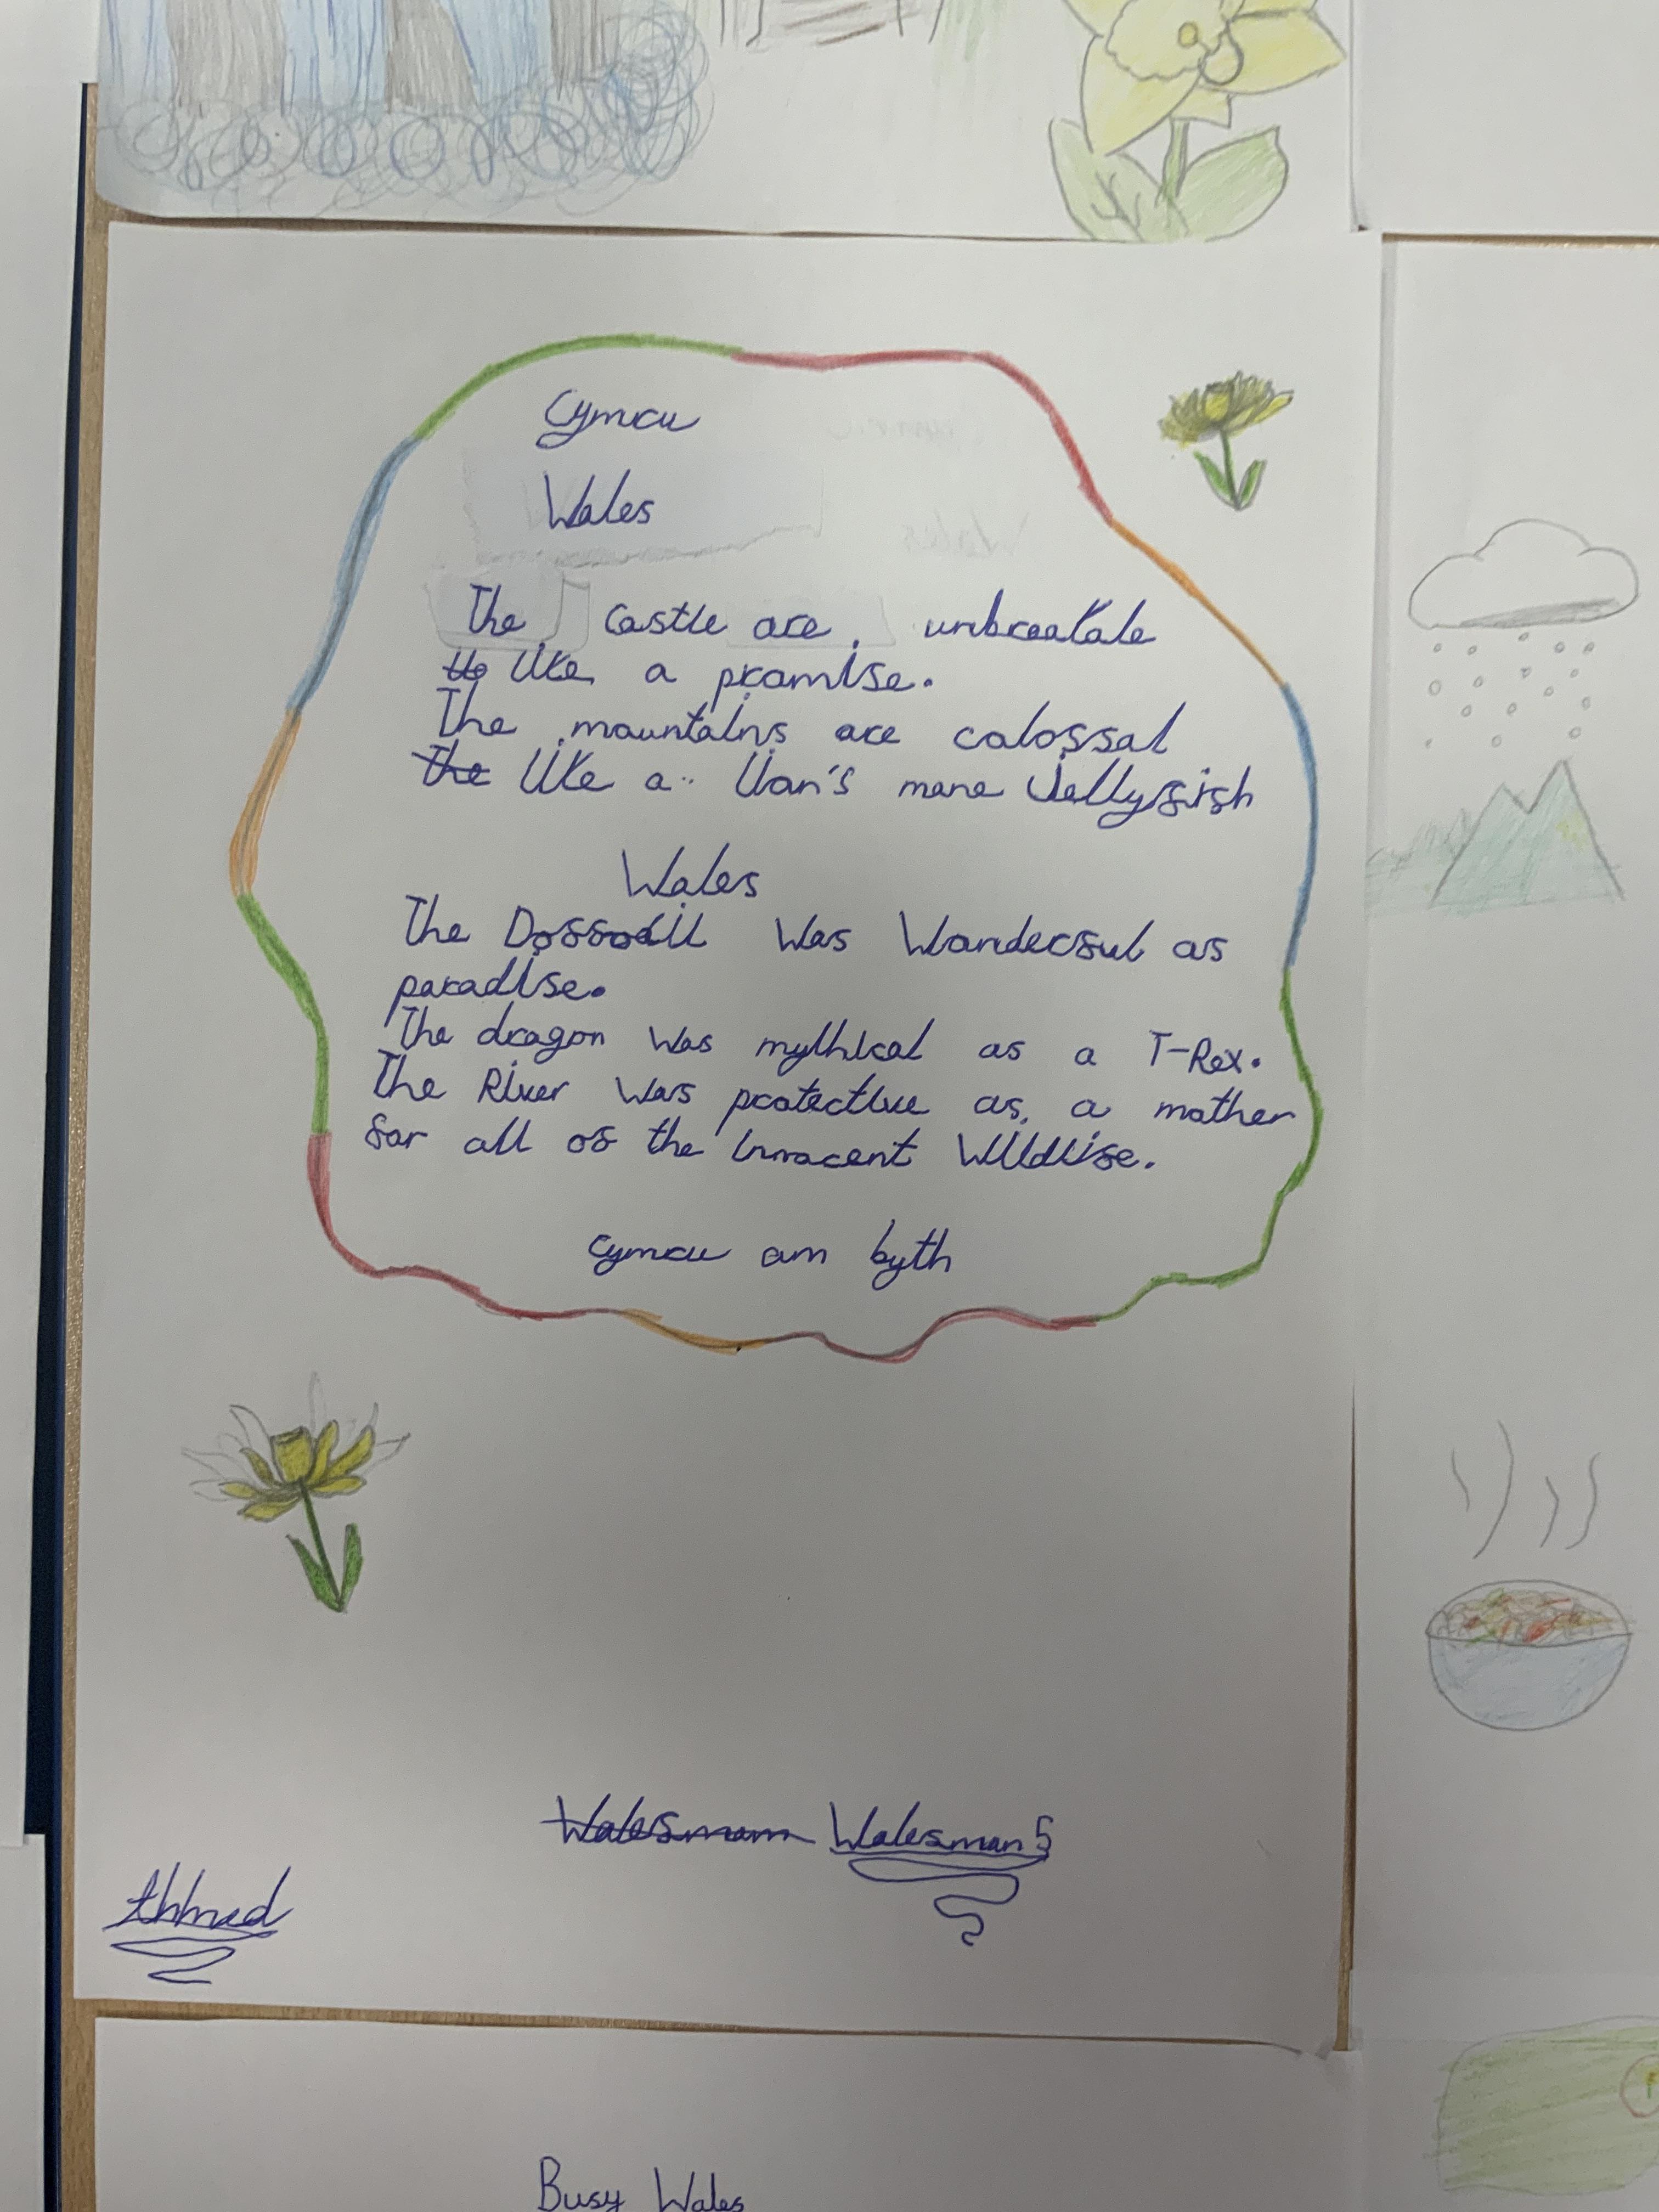 Cymru
Wales
The Castle are unbreakale
like a promise.
The mountains are colossal
The like a lion's mane Jellyfish
Wales
The Daffodil was Wonderful as
paradise.
The dragon was mythical as a T-Rex.
The River was protective as a mother
for all of the innocent Wildlife.
Cymru am byth
Walesman Walesman5
Ahmed
Busy Wales